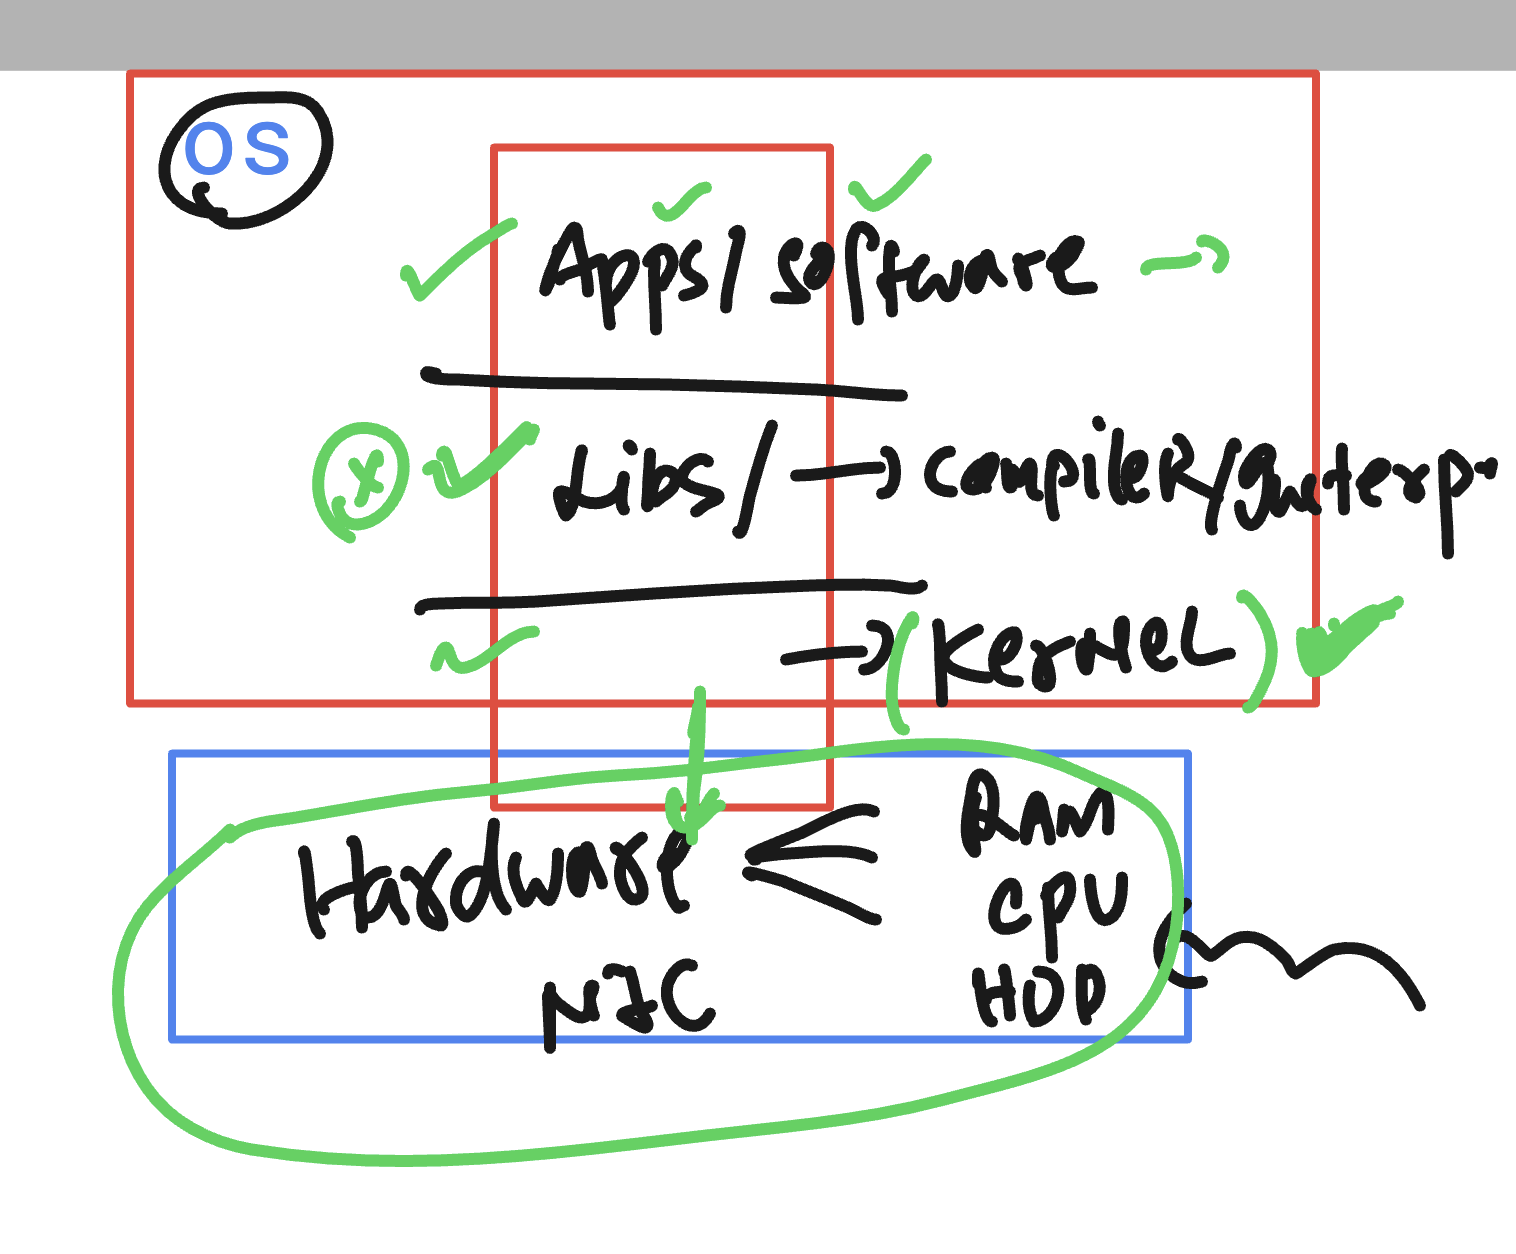 OS
Apps/software
x Libs/ → Compiler/Interp
(Kernel)
Hardware
RAM
CPU
NIC
HDD